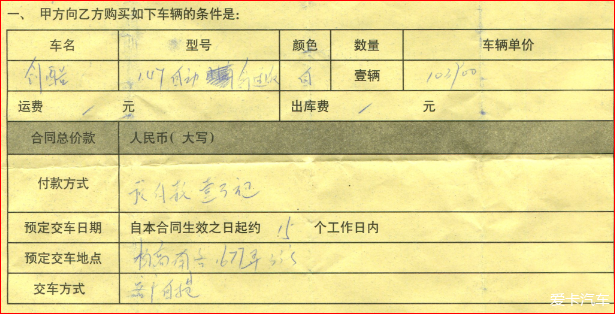 一、 甲方向乙方购买如下车辆的条件是：
车名 型号 颜色 数量 车辆单价
自动 白 壹辆 102900
运费 / 元 出库费 / 元
合同总价款 人民币( 大写)
付款方式
预定交车日期 自本合同生效之日起约 15 个工作日内
预定交车地点
交车方式 自提
爱卡汽车